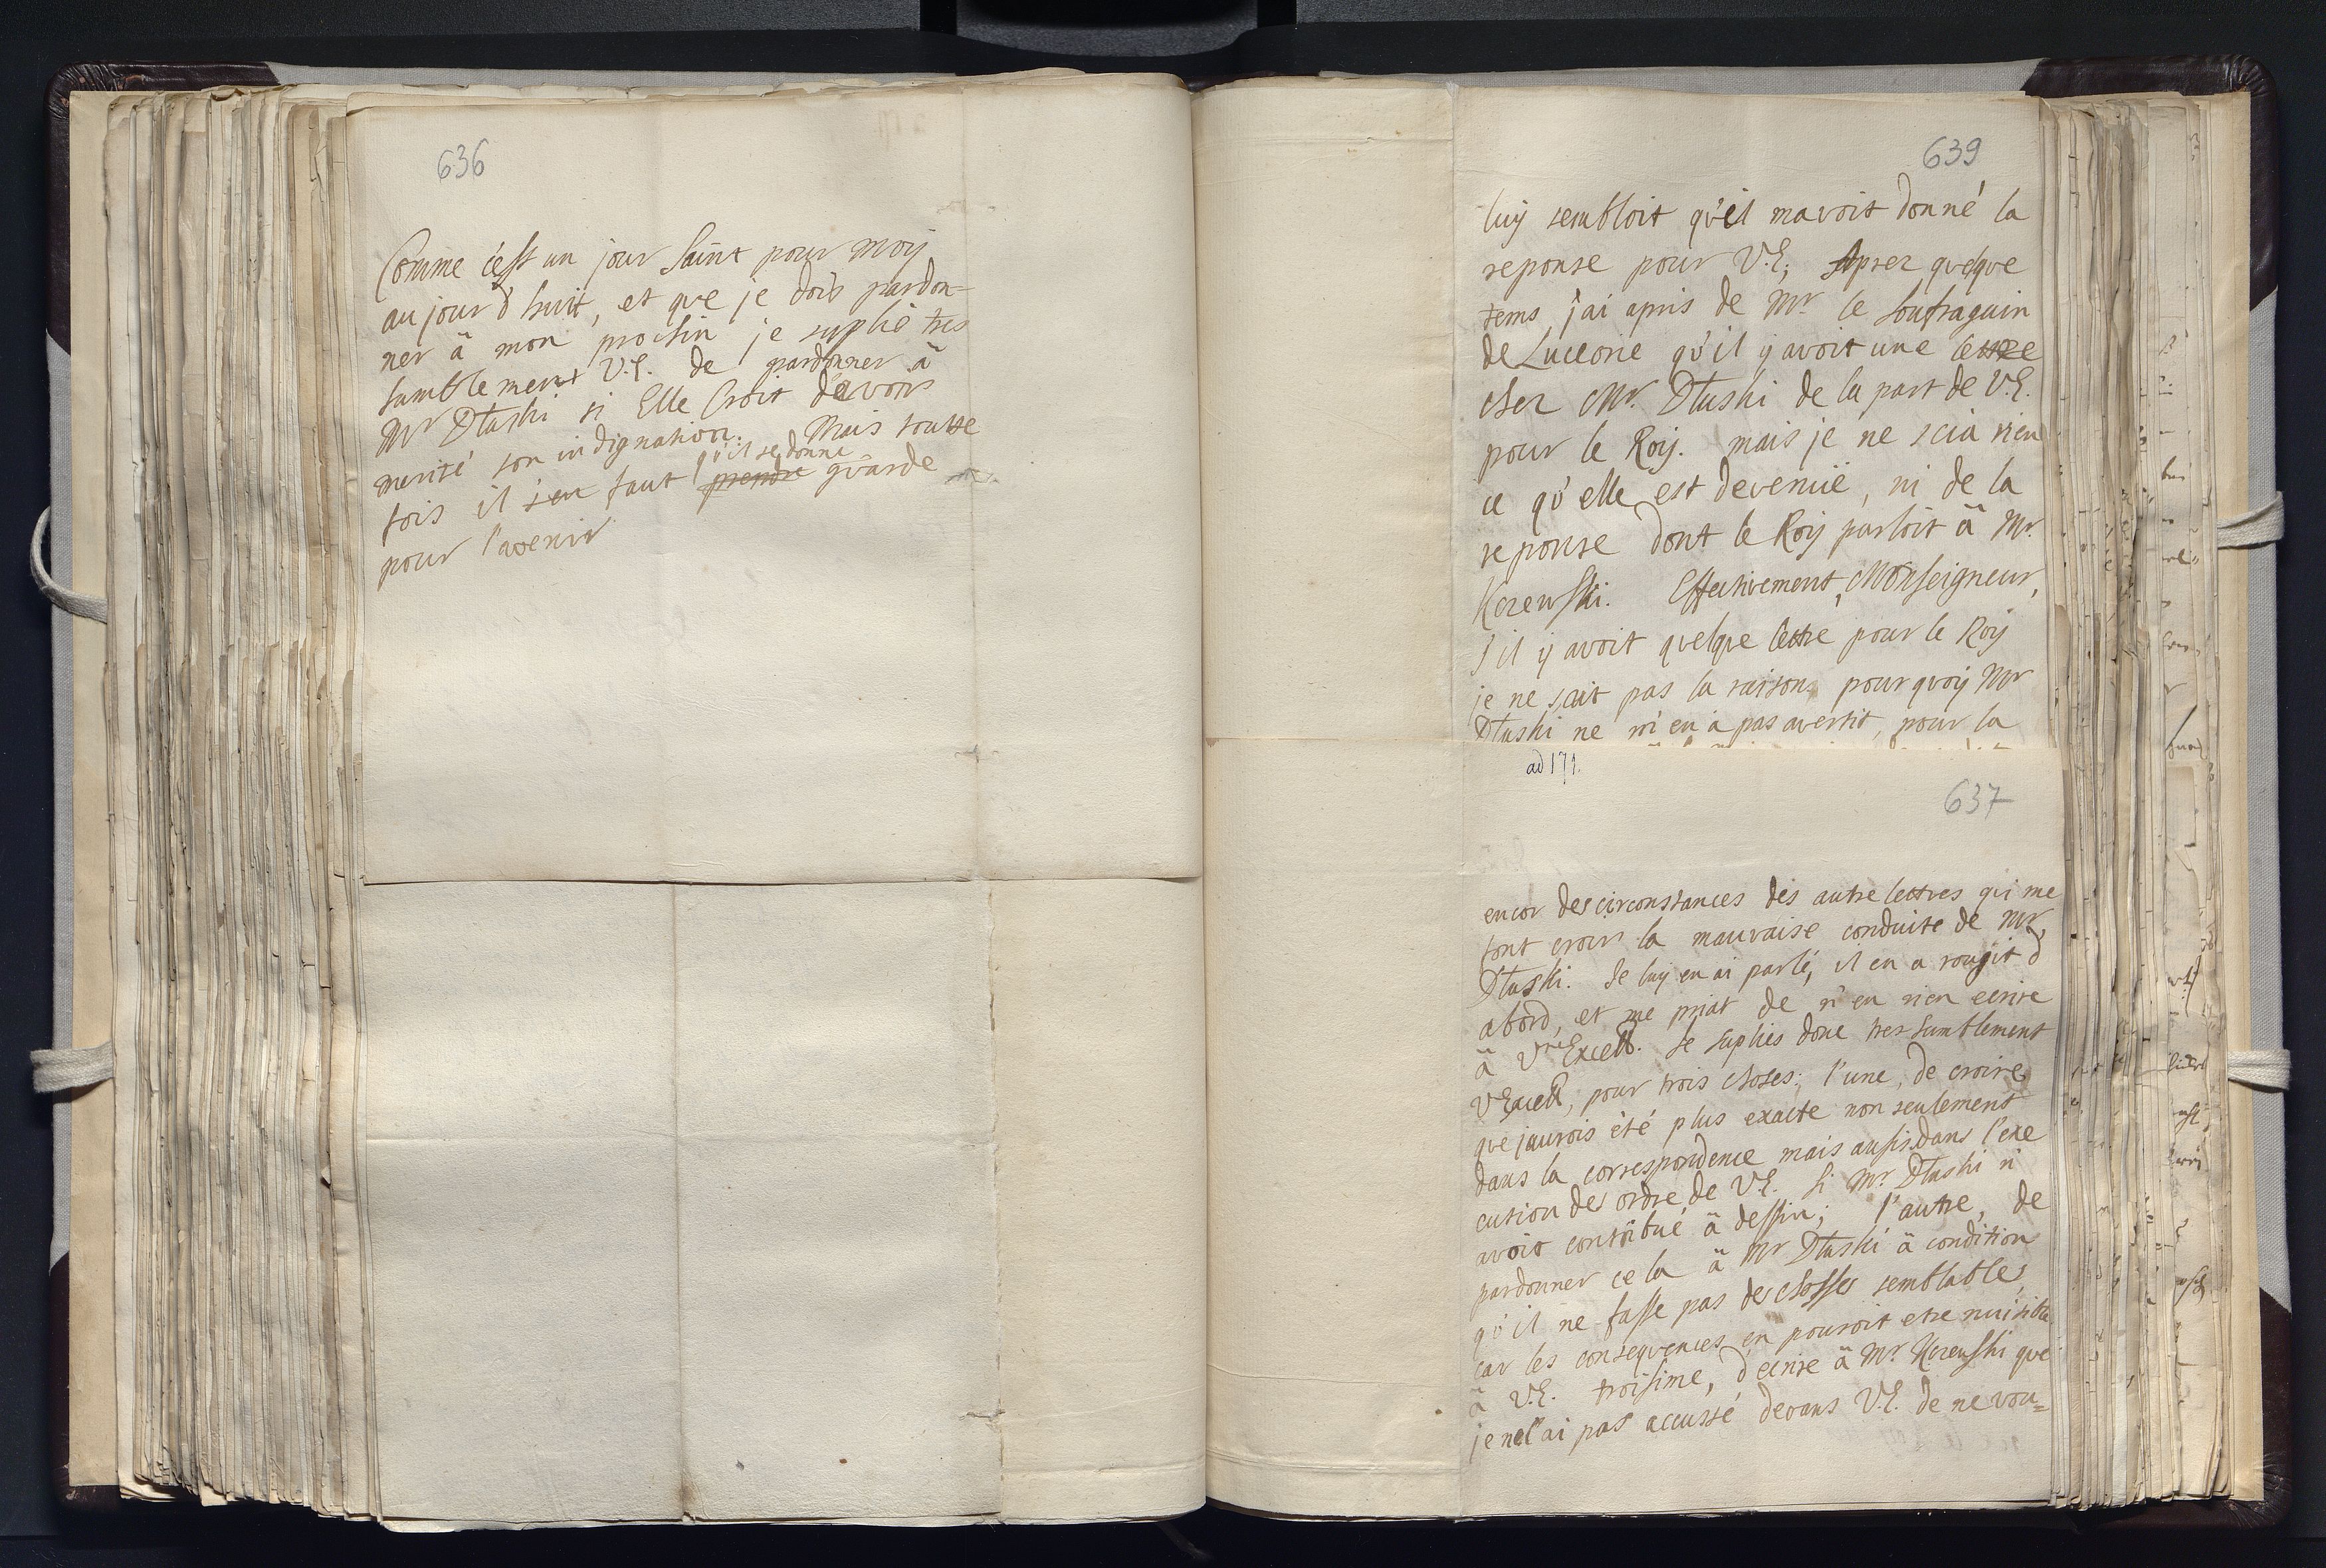 636
Comme c'est un jour saint pour moy
aujourd'huit, et que je dois pardon=
ner à mon prochin je suplie tres
humblement V.E. de pardonner à
Mr Dłuski si Elle croit d'avoir
merité son indignation. Mais toutte
fois il s'en faut qu'il se donne prendre guarde
pour l'avenir
639
luy sembloit qu'il mavoit donné la
reponse pour V.E; Aprez quelque
tems j'ai apris de Mr le soufraguin
de Luceorie qu'il y avoit une lettre
chez Mr. Dłuski de la part de V.E.
pour le Roy. mais je ne scia rien
ce qu'elle est devenuë, ni de la
reponse dont le Roy parloit à Mr.
Kczewski. Effectivement, Monseigneur,
s'il y avoit quelque lettre pour le Roy
je ne scait pas la raison pourquoy Mr
Dłuski ne m'en a pas avertit, pour la
ad 171.
637
encor des circonstances des autre lettres qui me
font croire la mauvaise conduite de Mr
Dłuski. Je luy en ai parlé, il en a rougit d'
abord, et me priat de n'en rien ecrire
à Vtre Excell. Je suplies donc tres humblement
V Excell, pour trois choses; l'une, de croire
que jaurois été plus exacte non seulement
dans la correspondence mais aussi dans l'exe
cution des ordre de V.E. si Mr. Dłuski n'
avoit contribué à dessin; l'autre, de
pardonner cela à Mr Dłuski à condition
qu'il ne fasse pas des chosses semblables,
car les consequences en pouroit etre nuisible
à V.E. troisime, d'ecrire à Mr. Kczewski que
je nel'ai pas accussé devans V.E. de ne vou=